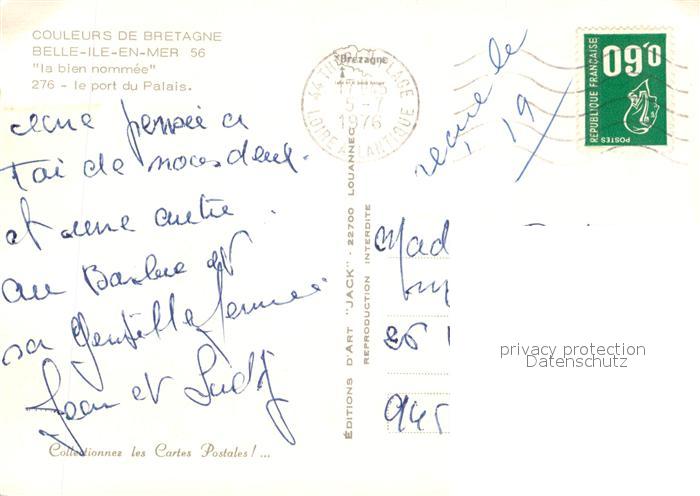 COULEURS DE BRETAGNE
BELLE-ILE-EN-MER 56
"la bien nommée"
276 - le port du Palais.
une pensée a
toi de nous deux.
et une autre
au Barbu et
sa gentille femme
Jean et
Collectionnez les Cartes Postales ! ...
ÉDITIONS D'ART "JACK" - 22700 LOUANNEC
REPRODUCTION INTERDITE
Bretagne
5-7
1976
LOIRE ATLANTIQUE
reçue le
19
0,60
RÉPUBLIQUE FRANÇAISE
POSTES
Mad
26
945
privacy protection
Datenschutz